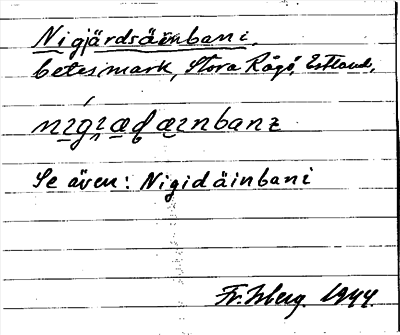 Nigjärdsäinbani,
betesmark, Stora Rågö, Estland,
Se även: Nigidäinbani
Fr. Isberg. 1944.